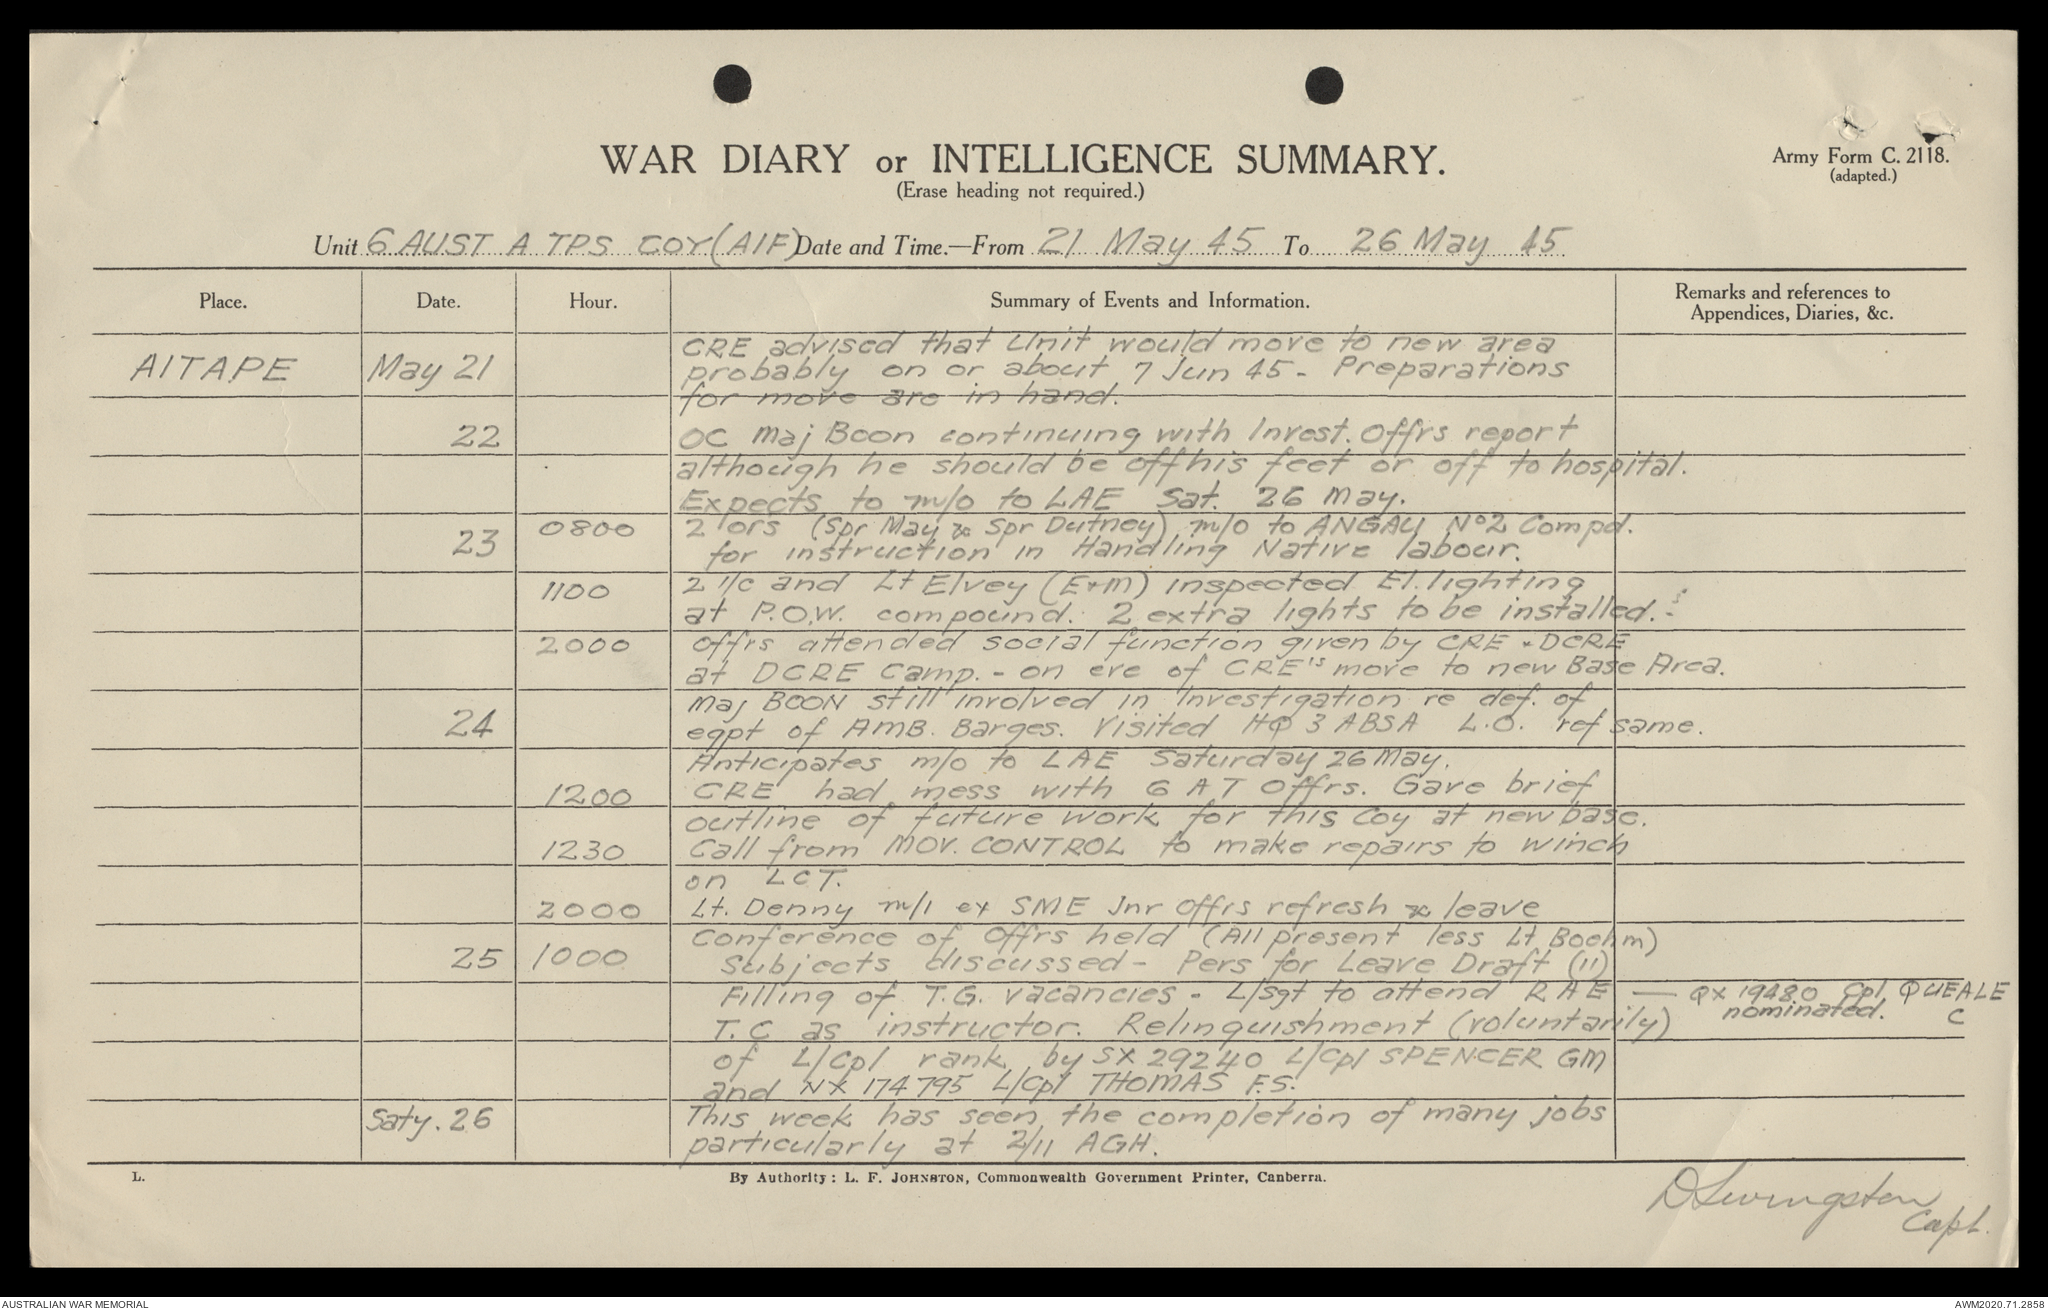 WAR DIARY or INTELLIGENCE SUMMARY.
Army Form C. 2118.
(adapted.)
(Erase heading not required.)
Unit 6 AUST A TPS COY (AIF) Date and Time.—From 21 May 45 To 26 May 45
Place. Date. Hour. Summary of Events and Information. Remarks and references to
Appendices, Diaries, &c.
AITAPE May 21 CRE advised that Unit would move to new area
probably on or about 7 Jun 45 - Preparations
for move are in hand.
22 OC Maj Boon continuing with Invest. Offrs report
although he should be off his feet or off to hospital.
Expects to m/o to LAE Sat. 26 May.
23 0800 2 ors (Spr May & Spr Dutney) m/o to ANGAU No 2 Compd.
for instruction in Handling Native labour.
1100 2 i/c and Lt Elvey (E+M) inspected El. lighting
at P.O.W. compound. 2 extra lights to be installed.-
2000 Offrs attended social function given by CRE + DCRE
at DCRE Camp. - on eve of CRE's move to new Base Area.
24 Maj BOON still involved in Investigation re def. of
eqpt of AMB. Barges. Visited HQ 3 ABSA L.O. ref same.
Anticipates m/o to LAE Saturday 26 May.
1200 CRE had mess with 6 A T Offrs. Gave brief
outline of future work for this Coy at new base.
1230 Call from MOV. CONTROL to make repairs to winch
on LCT.
2000 Lt. Denny m/i ex SME Jnr Offrs refresh & leave
25 1000 Conference of Offrs held (All present less Lt Boehm)
Subjects discussed - Pers for Leave Draft (11)
Filling of T.G. vacancies - L/Sgt to attend RAE — QX 19480 Cpl QUEALE
nominated. C
T.C as instructor. Relinquishment (voluntarily)
of L/Cpl rank by SX 29240 L/Cpl SPENCER GM
and NX 174795 L/Cpl THOMAS F.S.
Saty. 26 This week has seen the completion of many jobs
particularly at 2/11 AGH.
L. By Authority: L. F. JOHNSTON, Commonwealth Government Printer, Canberra.
D Livingston
Capt.
AUSTRALIAN WAR MEMORIAL AWM2020.71.2858